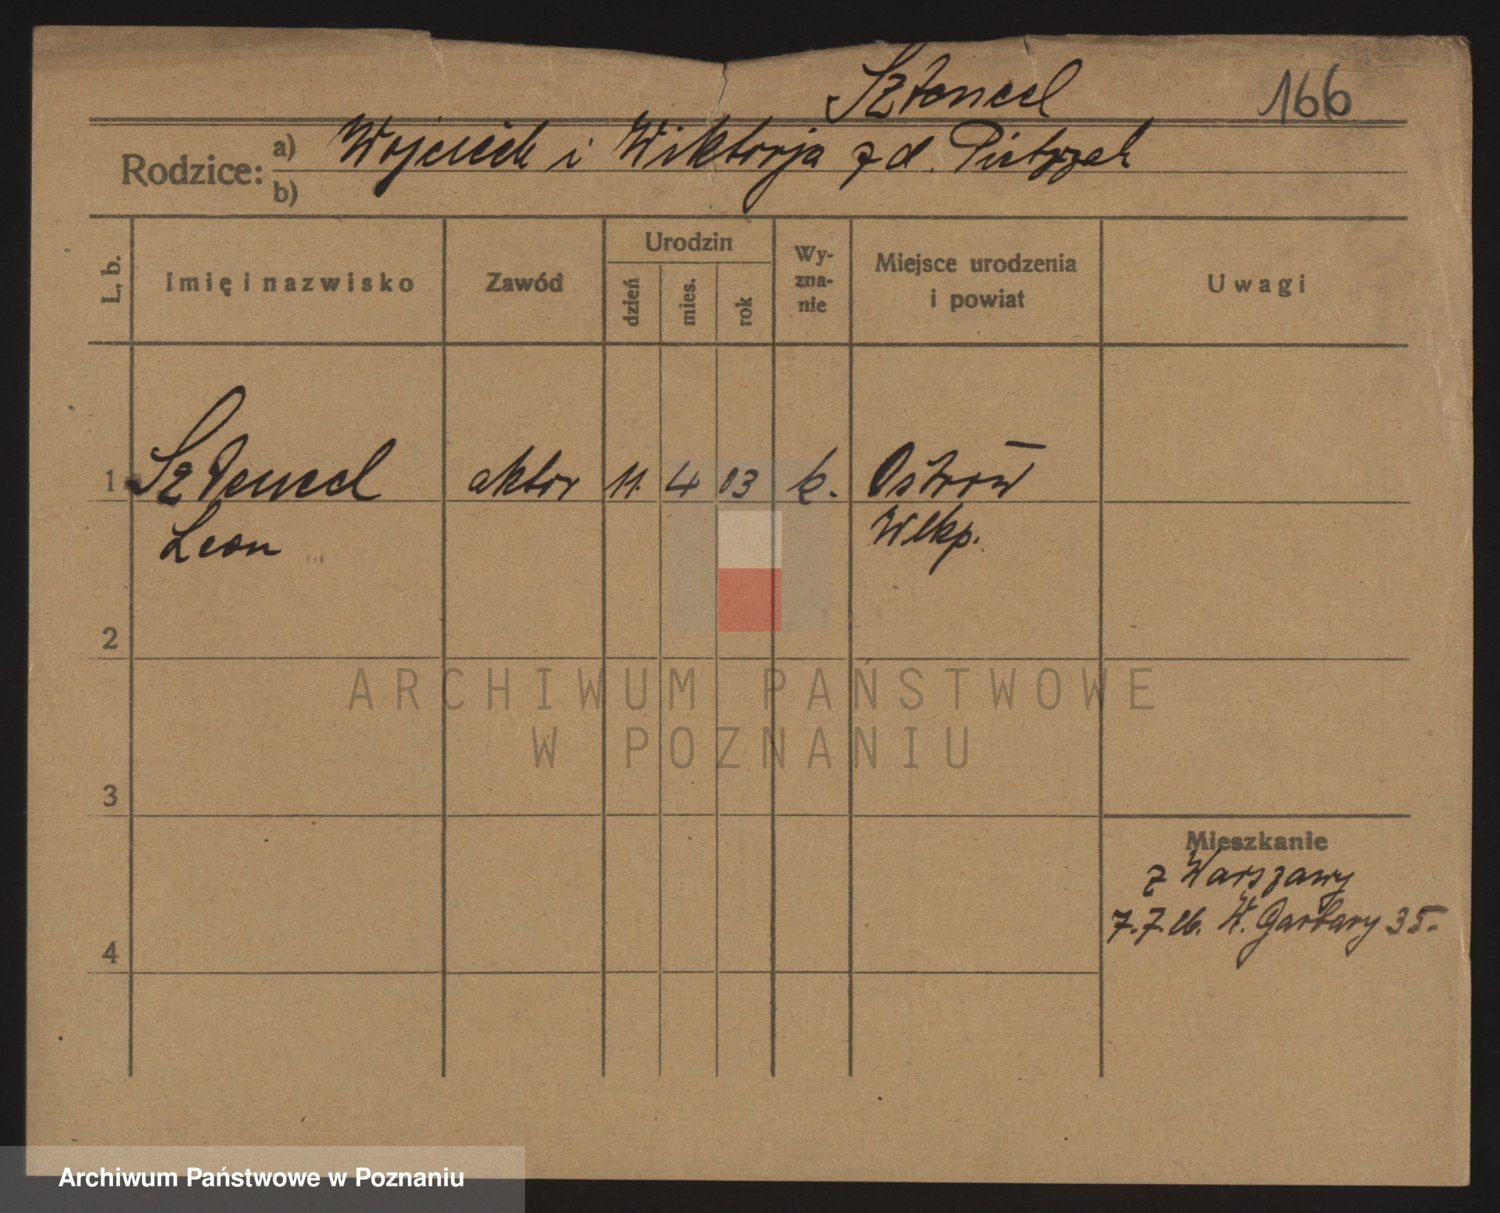 Sztencel 166
Rodzice: a) Wojciech i Wiktorja z d. Pietrzak
b)
L. b. Imię i nazwisko Zawód Urodzin dzień mies. rok Wy-zna-nie Miejsce urodzenia i powiat Uwagi
1 Sztencel aktor 11. 4 03 k. Ostrów
Leon Wlkp.
2
ARCHIWUM PAŃSTWOWE
W POZNANIU
3
Mieszkanie
z Warszawy
7.7.26. W. Garbary 35.
4
Archiwum Państwowe w Poznaniu